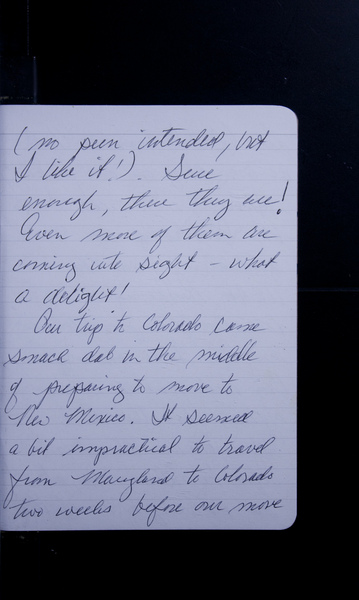 (no pun intended, but
I like it!). Sure
enough, there they are!
Even more of them are
coming into sight – what
a delight!
Our trip to Colorado came
smack dab in the middle
of preparing to move to
New Mexico. It seemed
a bit impractical to travel
from Maryland to Colorado
two weeks before our move